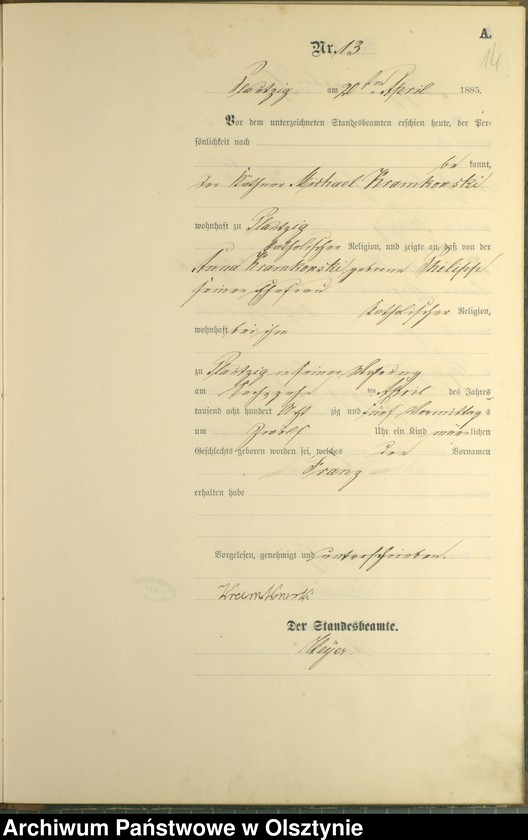 A.
14
Nr. 13
Plautzig am 20ten April 1885.
Vor dem unterzeichneten Standesbeamten erschien heute, der Per-
sönlichkeit nach
be kannt,
der Käthner Michael Kramkowski
wohnhaft zu Plautzig
katholischer Religion, und zeigte an, daß von der
Anna Kramkowski geborene
seiner Ehefrau
katholischer Religion,
wohnhaft bei ihm
zu Plautzig in seiner Wohnung
am ten April des Jahres
tausend acht hundert Acht zig und fünf Vormittags
um Zwölf Uhr ein Kind männlichen
Geschlechts geboren worden sei, welches den Vornamen
Franz
erhalten habe
Vorgelesen, genehmigt und unterschrieben.
Kramkowski
Der Standesbeamte.
Archiwum Państwowe w Olsztynie